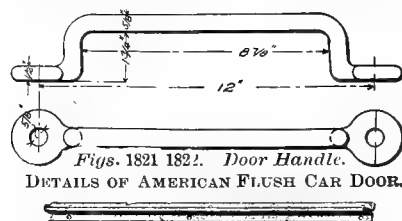 8⅛"
12"
Figs. 1821 1822. Door Handle.
DETAILS OF AMERICAN FLUSH CAR DOOR.